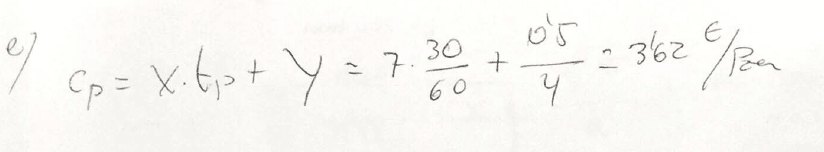 e) Cp = X · tp + Y = 7 · 30/60 + 0'5/4 = 3'62 €/